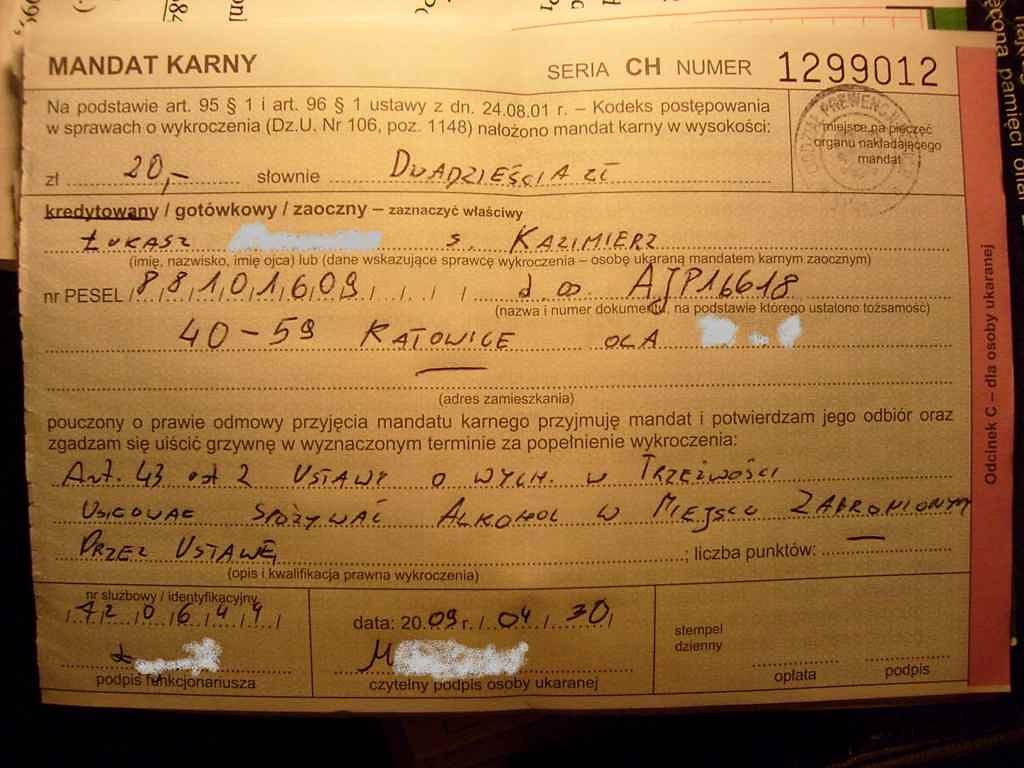 MANDAT KARNY SERIA CH NUMER 1299012
Na podstawie art. 95 § 1 i art. 96 § 1 ustawy z dn. 24.08.01 r. – Kodeks postępowania
w sprawach o wykroczenia (Dz.U. Nr 106, poz. 1148) nałożono mandat karny w wysokości:
miejsce na pieczęć
organu nakładającego
mandat
zł 20,- słownie DWADZIEŚCIA ZŁ
kredytowany / gotówkowy / zaoczny – zaznaczyć właściwy
ŁUKASZ S. KAZIMIERZ
(imię, nazwisko, imię ojca) lub (dane wskazujące sprawcę wykroczenia – osobę ukaraną mandatem karnym zaocznym)
nr PESEL 88101609 d.o. AJP16618
(nazwa i numer dokumentu, na podstawie którego ustalono tożsamość)
40-59 KATOWICE
(adres zamieszkania)
pouczony o prawie odmowy przyjęcia mandatu karnego przyjmuję mandat i potwierdzam jego odbiór oraz
zgadzam się uiścić grzywnę w wyznaczonym terminie za popełnienie wykroczenia:
Art. 43 ust 2 USTAWY O WYCH. W TRZEŹWOŚCI
USIŁOWAĆ SPOŻYWAĆ ALKOHOL W MIEJSCU ZABRONIONYM
PRZEZ USTAWĘ ; liczba punktów: —
(opis i kwalifikacja prawna wykroczenia)
nr służbowy / identyfikacyjny
420644
podpis funkcjonariusza
data: 2009 r. / 04 / 30
czytelny podpis osoby ukaranej
stempel
dzienny
opłata podpis
Odcinek C – dla osoby ukaranej